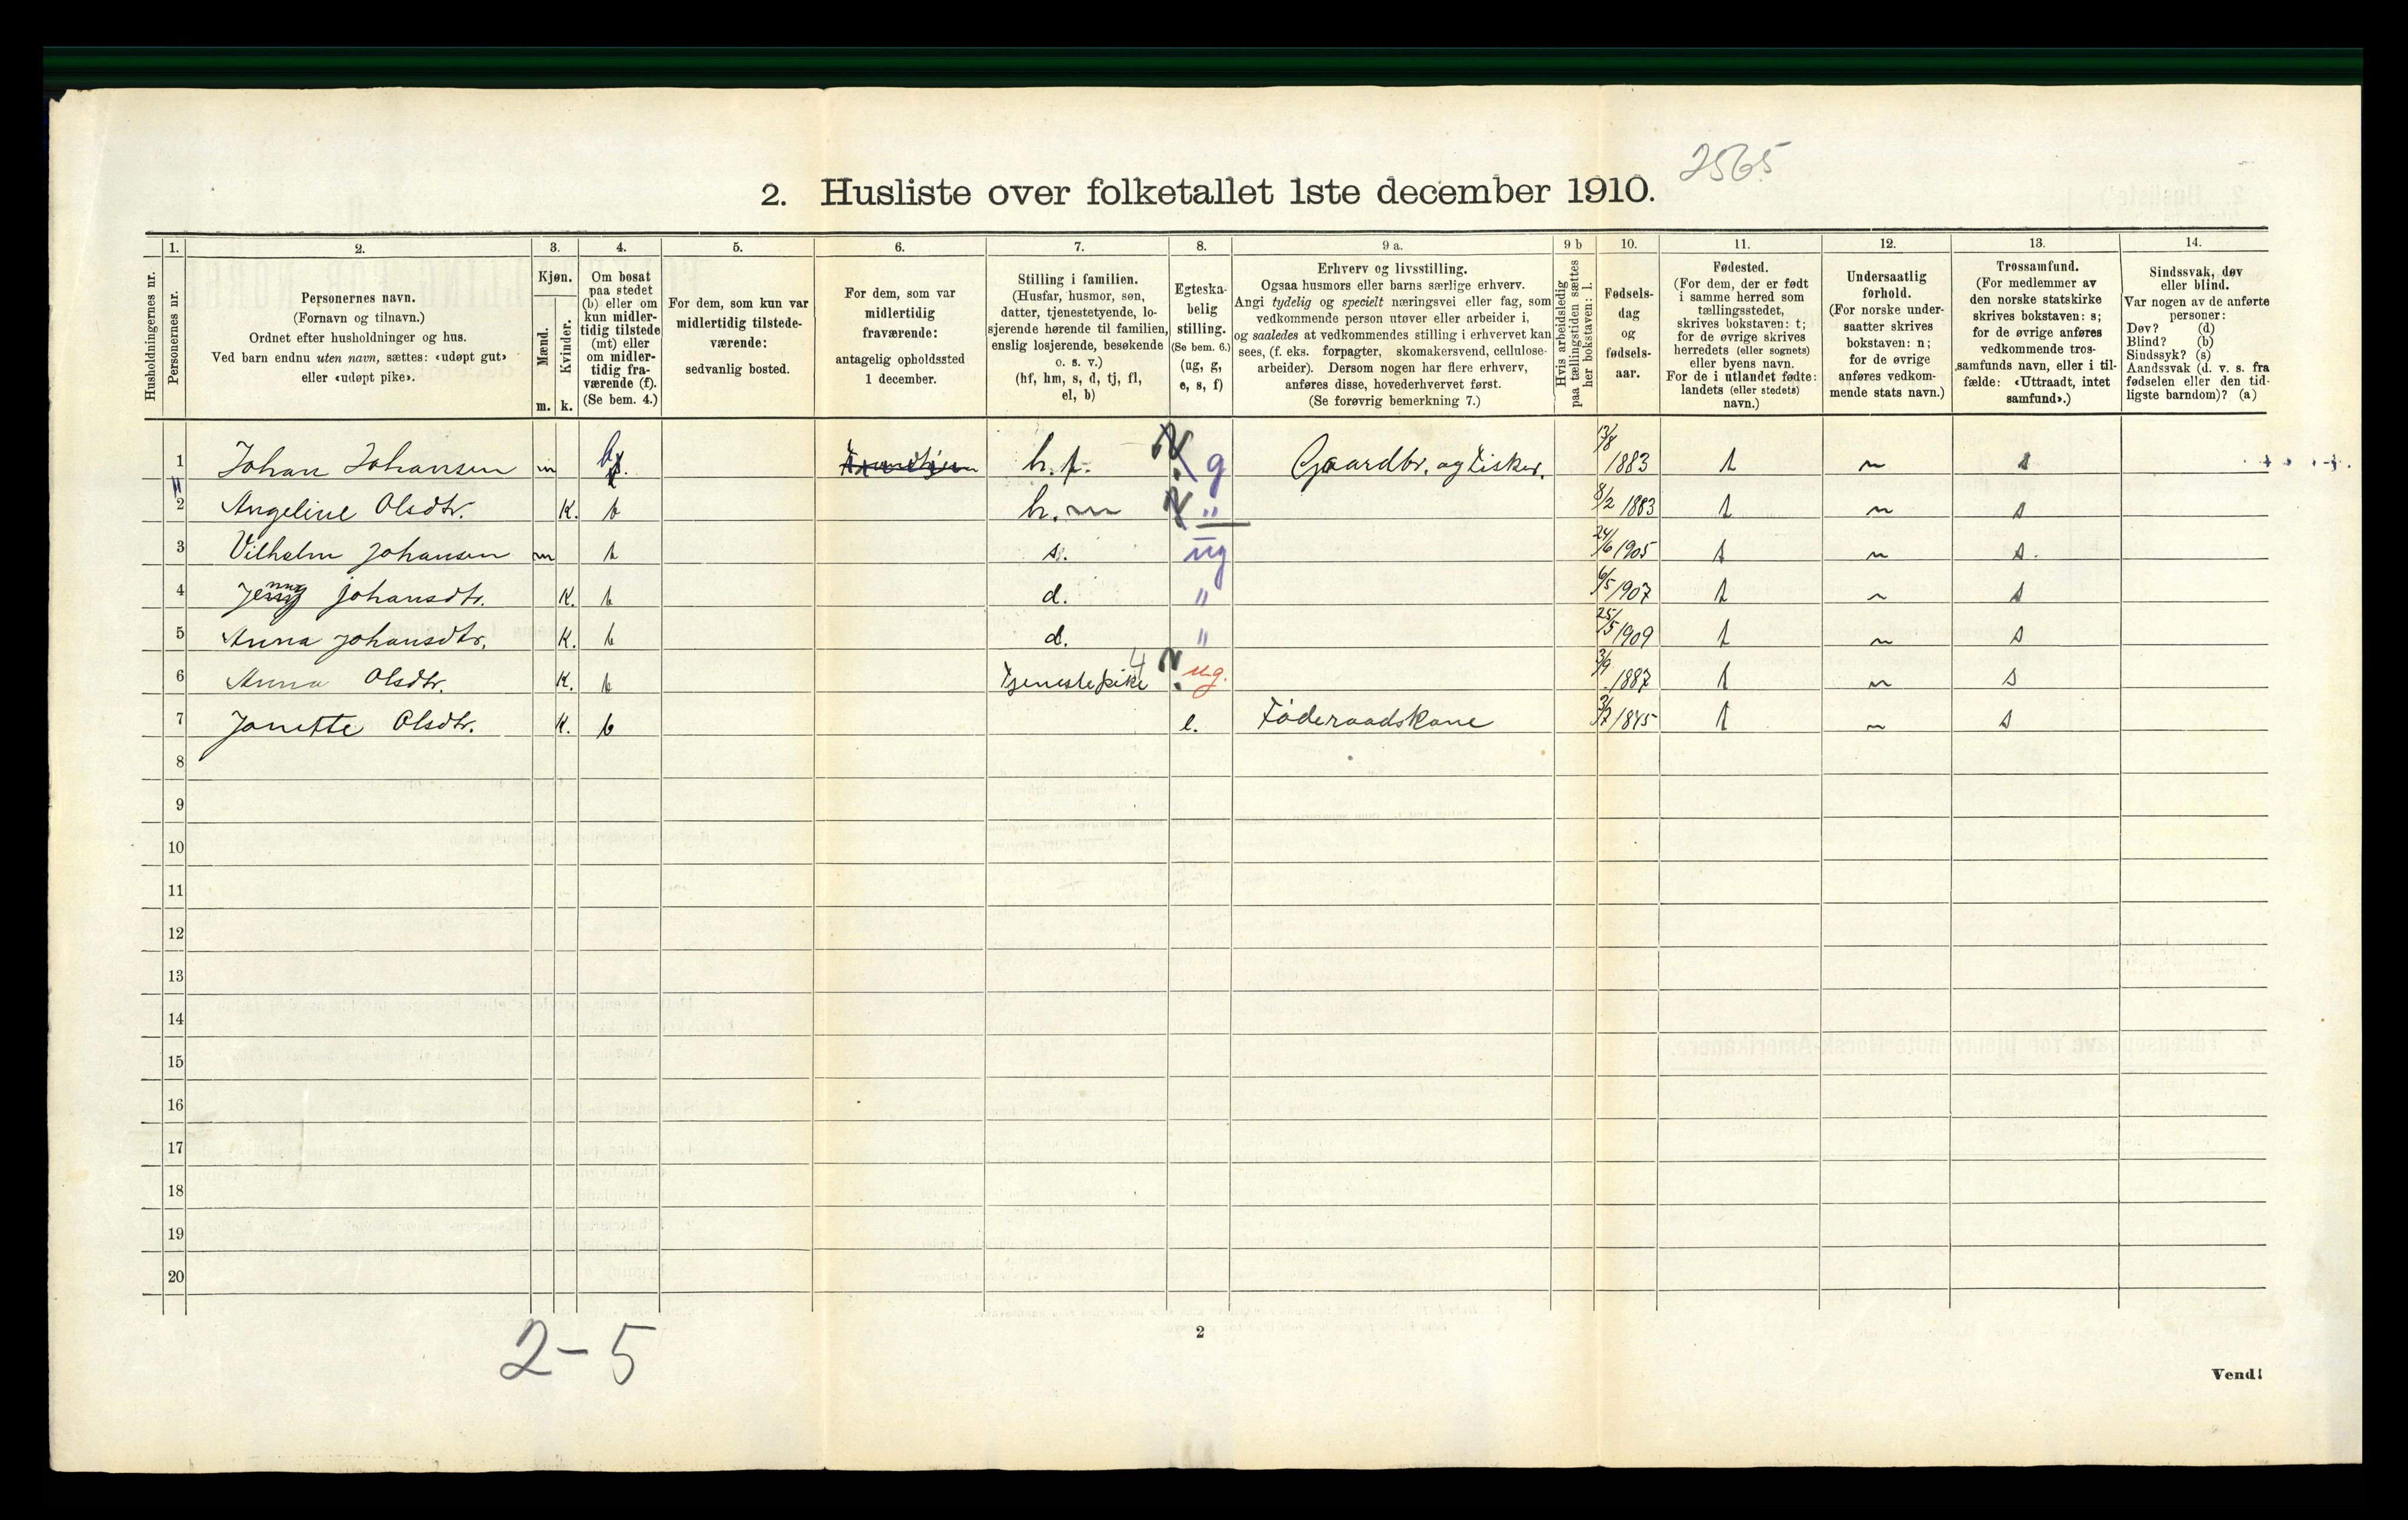 2565
2. Husliste over folketallet 1ste december 1910.
Husholdningernes nr.
1.
Personernes nr.
2.
Personernes navn.
(Fornavn og tilnavn.)
Ordnet efter husholdninger og hus.
Ved barn endnu uten navn, sættes: «udøpt gut»
eller «udøpt pike».
3.
Kjøn.
Mænd.
Kvinder.
m. k.
4.
Om bosat
paa stedet
(b) eller om
kun midler-
tidig tilstede
(mt) eller
om midler-
tidig fra-
værende (f).
(Se bem. 4.)
5.
For dem, som kun var
midlertidig tilstede-
værende:
sedvanlig bosted.
6.
For dem, som var
midlertidig
fraværende:
antagelig opholdssted
1 december.
7.
Stilling i familien.
(Husfar, husmor, søn,
datter, tjenestetyende, lo-
sjerende hørende til familien,
enslig losjerende, besøkende
o. s. v.)
(hf, hm, s, d, tj, fl,
el, b)
8.
Egteska-
belig
stilling.
(Se bem. 6.)
(ug, g,
e, s, f)
9 a.
Erhverv og livsstilling.
Ogsaa husmors eller barns særlige erhverv.
Angi tydelig og specielt næringsvei eller fag, som
vedkommende person utøver eller arbeider i,
og saaledes at vedkommendes stilling i erhvervet kan
sees, (f. eks. forpagter, skomakersvend, cellulose-
arbeider). Dersom nogen har flere erhverv,
anføres disse, hovederhvervet først.
(Se forøvrig bemerkning 7.)
9 b
Hvis arbeidsledig
paa tællingstiden sættes
her bokstaven: l.
10.
Fødsels-
dag
og
fødsels-
aar.
11.
Fødested.
(For dem, der er født
i samme herred som
tællingsstedet,
skrives bokstaven: t;
for de øvrige skrives
herredets (eller sognets)
eller byens navn.
For de i utlandet fødte:
landets (eller stedets)
navn.)
12.
Undersaatlig
forhold.
(For norske under-
saatter skrives
bokstaven: n;
for de øvrige
anføres vedkom-
mende stats navn.)
13.
Trossamfund.
(For medlemmer av
den norske statskirke
skrives bokstaven: s;
for de øvrige anføres
vedkommende tros-
samfunds navn, eller i til-
fælde: «Uttraadt, intet
samfund».)
14.
Sindssvak, døv
eller blind.
Var nogen av de anførte
personer:
Døv? (d)
Blind? (b)
Sindssyk? (s)
Aandssvak (d. v. s. fra
fødselen eller den tid-
ligste barndom)? (a)
1 Johan Johansen m b h.f. g Gaardbr. og fisker. 13/8 1883 t n s
2 Angeline Olsdtr. K. b h.m " 8/2 1883 t n s
3 Vilhelm Johansen m b s. ug 24/6 1905 t n s.
4 Jenny Johansdtr. K. b d. " 6/5 1907 t n s
5 Anna Johansdtr. K. b d. " 25/5 1909 t n s
6 Anna Olsdtr. K. b Tjenestepike 4 ug. 3/9 1887 t n s
7 Jonette Olsdtr. K. b e. Føderaadskone 1845 t n s
8
9
10
11
12
13
14
15
16
17
18
19
20
2-5
2
Vend!